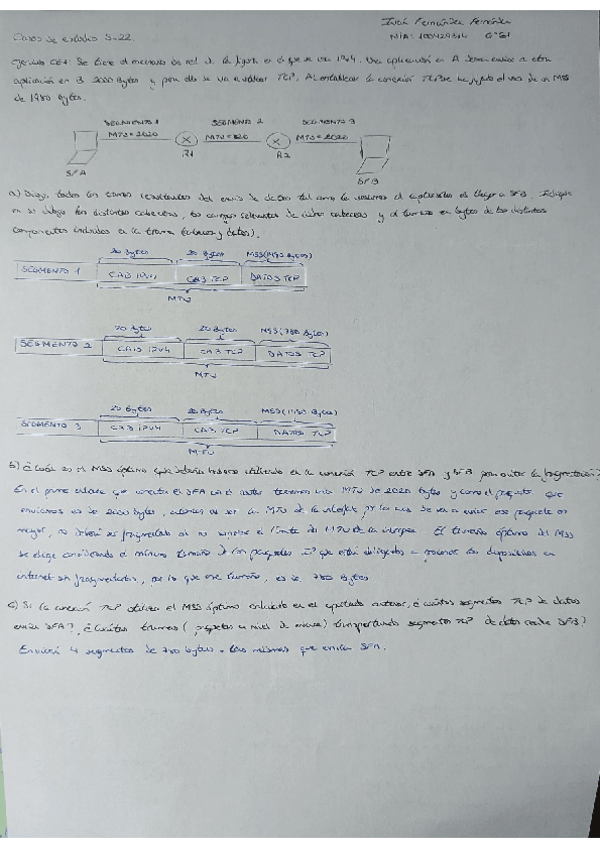 Iván Fernández Fernández
Casos de estudio S-22.
NIA:
Ejercicio CE1: Se tiene el de red de la figura en el que se usa IPv4. Una aplicación en A desea enviar a otra
aplicación en B 2000 bytes y para ello se va a utilizar TCP. Al establecer la conexión TCP se ha el uso de un MSS
de 1980 bytes.
SEGMENTO 1 SEGMENTO 2 SEGMENTO 3
MTU=2020 MTU=820 MTU=2020
R1 R2
SFA SFB
a) Dibuje todas las tramas resultantes del envío de datos tal como la de la aplicación es a SFB. Indique
en su dibujo las distintas cabeceras, los campos relevantes de dichas cabeceras y el tamaño en bytes de los distintos
componentes incluidos en la trama (cabeceras y datos).
20 Bytes 20 Bytes MSS(1980 Bytes)
SEGMENTO 1 CAB IPv4 CAB TCP DATOS TCP
MTU
20 Bytes 20 Bytes MSS(780 Bytes)
SEGMENTO 2 CAB IPv4 CAB TCP DATOS TCP
MTU
20 Bytes 20 Bytes MSS(1980 Bytes)
SEGMENTO 3 CAB IPv4 CAB TCP DATOS TCP
MTU
b) ¿Cuál es el MSS óptimo que debería haberse utilizado en la conexión TCP entre SFA y SFB para evitar la fragmentación?
En el primer enlace que conecta el SFA con el router tenemos una MTU de 2020 bytes y como el paquete que
enviamos es de 2000 bytes, además al ser la MTU de la interfaz por la que se va a enviar ese paquete es
mayor, no deberá ser fragmentado al no superar el límite del MTU de la interfaz. El tamaño óptimo del MSS
se elige considerando el mínimo tamaño de los paquetes IP que están obligados a los dispositivos en
internet sin fragmentarlos, por lo que ese tamaño, es de 780 Bytes
c) Si la conexión TCP utiliza el MSS óptimo calculado en el apartado anterior, ¿cuántos segmentos TCP de datos
envía SFA?, ¿Cuántas tramas (paquetes a nivel de enlace) transportando segmentos TCP de datos recibe SFB?
Enviará 4 segmentos de 780 bytes. Los mismos que envían SFA.